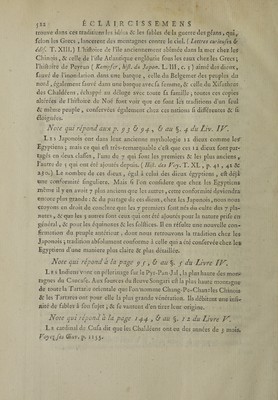 322 ÉCLAIRCISSEMENS
trouve dans ces traditions les idées & les fables de la guerre des géans, qui,
selon les Grecs, lancerent des montagnes contre le ciel (Lettres curieuses &
édif. T. XIII.) L'histoire de l'île anciennement abîmée dans la mer chez les
Chinois, & celle de l'île Atlantique engloutie sous les eaux chez les Grecs;
l'histoire de Peyrun (Kempfer, hist. du Japon. L. III, c. 3) ainsi dit donné,
sauvé de l'inondation dans une barque, celle du Belgemer des peuples du
nord, également sauvé dans une barque avec sa femme, & celle du Xisuthrus
des Chaldéens, échappé au déluge avec toute sa famille; toutes ces copies
altérées de l'histoire de Noé font voir que ce sont les traditions d'un seul
& même peuple, conservées également chez ces nations si différentes & si
éloignées.
Note qui répond aux p. 93 & 94, & au §. 4 du Liv. IV.
Les Japonois ont dans leur ancienne mythologie 12 dieux comme les
Egyptiens; mais ce qui est très-remarquable c'est que ces 12 dieux sont par-
tagés en deux classes, l'une de 7 qui sont les premiers & les plus anciens,
l'autre de 5 qui ont été ajoutés depuis. (Hist. des Voy. T. XL, p. 41, 42 &
250.) Le nombre de ces dieux, égal à celui des dieux égyptiens, est déjà
une conformité singuliere. Mais si l'on considere que chez les Egyptiens
même il y en avoit 7 plus anciens que les autres, cette conformité deviendra
encore plus grande: & du partage de ces dieux, chez les Japonois, nous nous
croyons en droit de conclure que les 7 premiers sont nés du culte des 7 pla-
netes, & que les 5 autres sont ceux qui ont été ajoutés pour la nature prise en
général, & pour les équinoxes & les solstices. Il en résulte une nouvelle con-
firmation du peuple antérieur, dont nous retrouvons la tradition chez les
Japonois; tradition absolument conforme à celle qui a été conservée chez les
Egyptiens d'une maniere plus claire & plus détaillée.
Note qui répond à la page 95, & au §. 5 du Livre IV.
Les Indiens vont en pélerinage sur le Pyr-Pan-Jal, la plus haute des mon-
tagnes du Caucase. Aux sources du fleuve Songari est la plus haute montagne
de toute la Tartarie orientale que l'on nomme Chang-Pe-Chan: les Chinois
& les Tartares ont pour elle la plus grande vénération. Ils débitent une infi-
nité de fables à son sujet, & se vantent d'en tirer leur origine.
Note qui répond à la page 144, & au §. 12 du Livre V.
Le cardinal de Cusa dit que les Chaldéens ont eu des années de 3 mois.
Voyez ses Œuv. p. 1155.